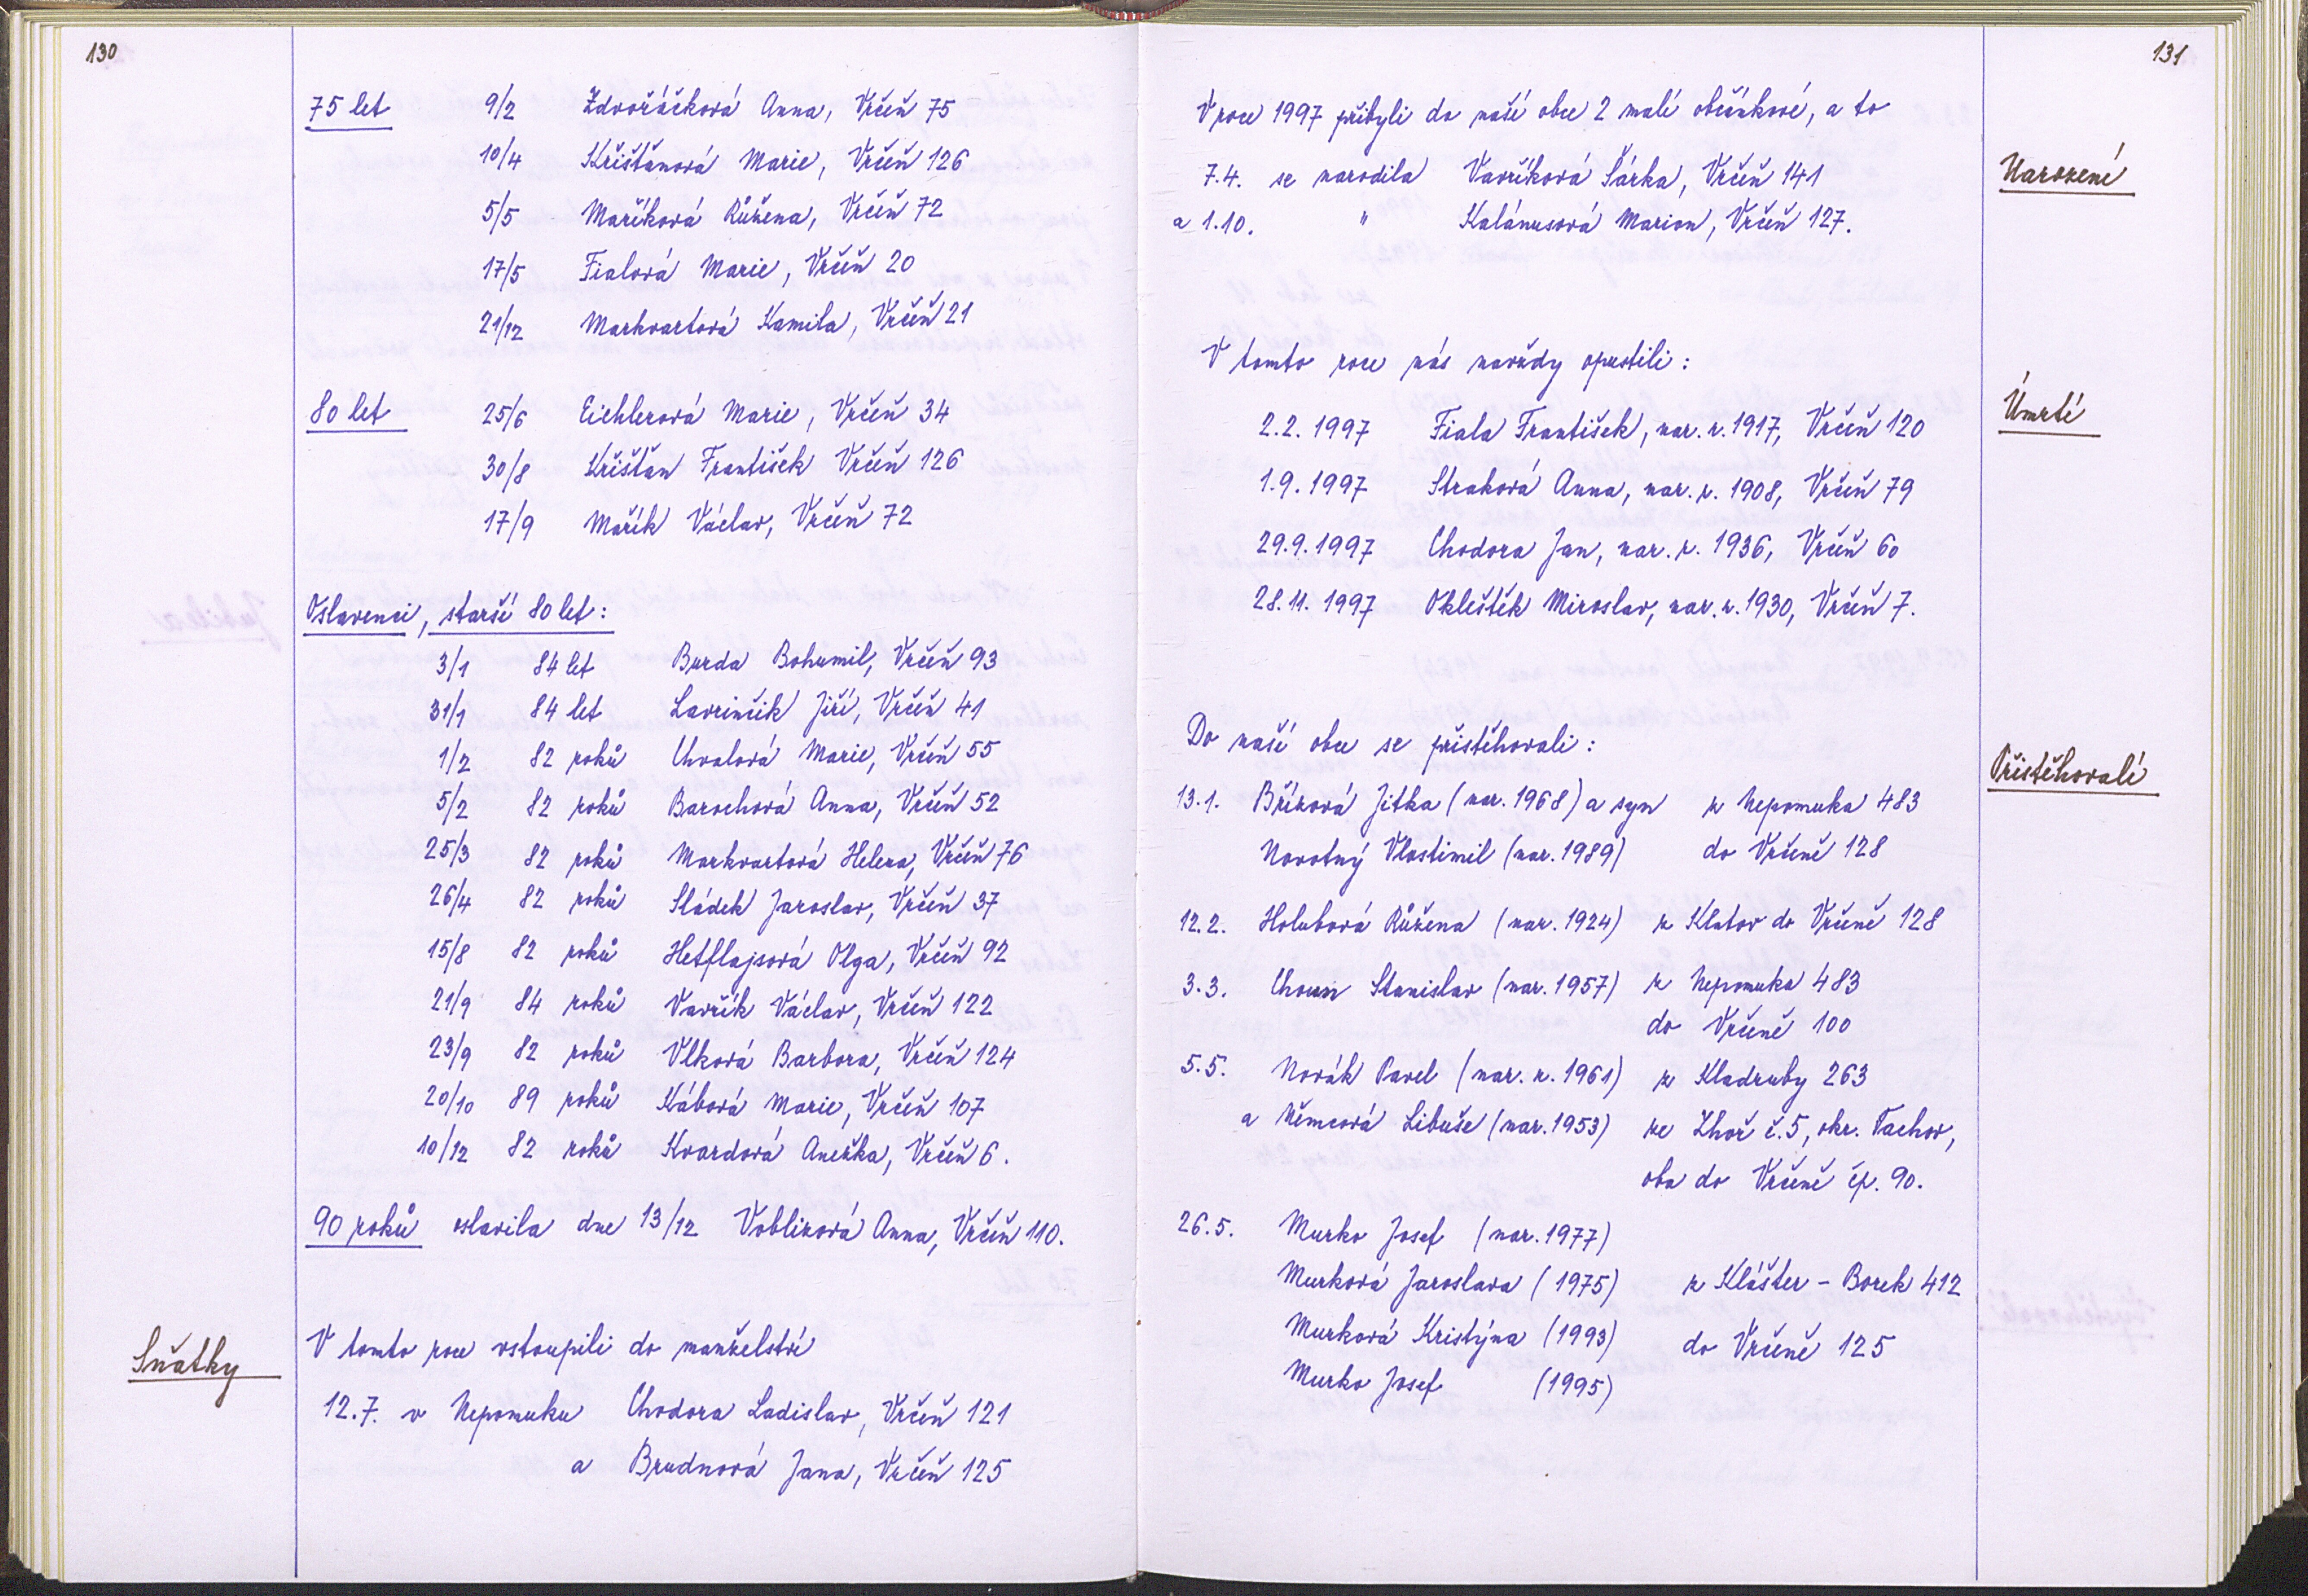 130
75 let 9/2 Zdvořáčková Anna, Vrčeň 75
10/4 Křišťanová Marie, Vrčeň 126
5/5 Maříková Růžena, Vrčeň 72
17/5 Fialová Marie, Vrčeň 20
21/12 Markvartová Kamila, Vrčeň 21
80 let 25/6 Eichlerová Marie, Vrčeň 34
30/8 Křišťan František Vrčeň 126
17/9 Mařík Václav, Vrčeň 72
Oslavenci, starší 80 let:
3/1 84 let Burda Bohumil, Vrčeň 93
31/1 84 let Lavrinčik Jiří, Vrčeň 41
1/2 82 roků Chvalová Marie, Vrčeň 55
5/2 82 roků Barochová Anna, Vrčeň 52
25/3 82 roků Markvartová Helena, Vrčeň 76
26/4 82 roků Sládek Jaroslav, Vrčeň 37
15/8 82 roků Hetflajsová Olga, Vrčeň 92
21/9 84 roků Vavřík Václav, Vrčeň 122
23/9 82 roků Vlková Barbora, Vrčeň 124
20/10 89 roků Kábová Marie, Vrčeň 107
10/12 82 roků Kvardová Anežka, Vrčeň 6.
90 roků oslavila dne 13/12 Voblizová Anna, Vrčeň 110.
Sňatky
V tomto roce vstoupili do manželství
12.7. v Nepomuku Chodora Ladislav, Vrčeň 121
a Brudnová Jana, Vrčeň 125
131
V roce 1997 přibyli do naší obce 2 malí občánkové, a to
Narození
7.4. se narodila Vavříková Šárka, Vrčeň 141
a 1.10. " Kalánusová Marion, Vrčeň 127.
V tomto roce nás navždy opustili:
Úmrtí
2.2. 1997 Fiala František, nar. r. 1917, Vrčeň 120
1.9. 1997 Straková Anna, nar. r. 1908, Vrčeň 79
29.9.1997 Chodora Jan, nar. r. 1936, Vrčeň 60
28.11. 1997 Okleštěk Miroslav, nar. r. 1930, Vrčeň 7.
Do naší obce se přistěhovali:
Přistěhovalí
13.1. Břízová Jitka (nar. 1968) a syn z Nepomuka 483
Novotný Vlastimil (nar. 1989) do Vrčeně 128
12.2. Holubová Růžena (nar. 1924) z Klatov do Vrčeně 128
3.3. Stanislav (nar. 1957) z Nepomuka 483
do Vrčeně 100
5.5. Novák Pavel (nar. r. 1961) z Kladruby 263
a Němcová Libuše (nar. 1953) ze Zhoř č. 5, okr. Tachov,
oba do Vrčeně čp. 90.
26.5. Murko Josef (nar. 1977)
Murková Jaroslava (1975) z Klášter - Borek 412
Murková Kristýna (1993) do Vrčeně 125
Murko Josef (1995)